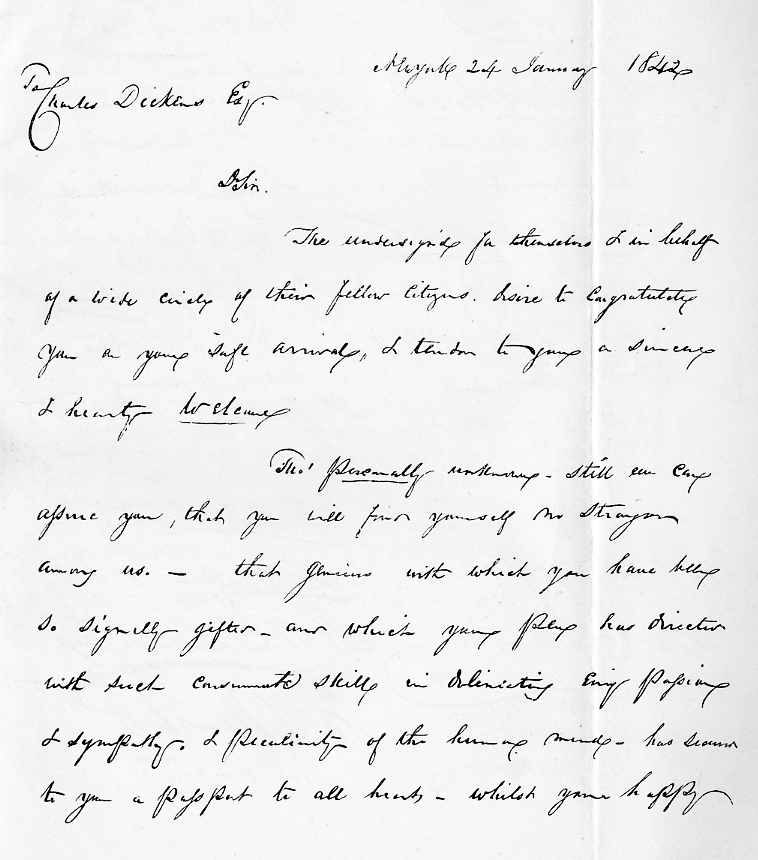 NewYork 24 January 1842
To Charles Dickens Esq.
D Sir.
The undersign'd for themselves & in behalf
of a wide circle of their fellow Citizens. desire to Congratulate
you on your safe arrival, & tender to you a sincere
& hearty Welcome
Tho' personally unknown - still we can
assure you, that you will find yourself no Stranger
among us. — that genius with which you have been
so signally gifted - and which your Pen has directed
with such consummate skill in delineating every passion
& sympathy, & peculiarity of the human mind - has secured
to you a passport to all hearts - whilst your happy